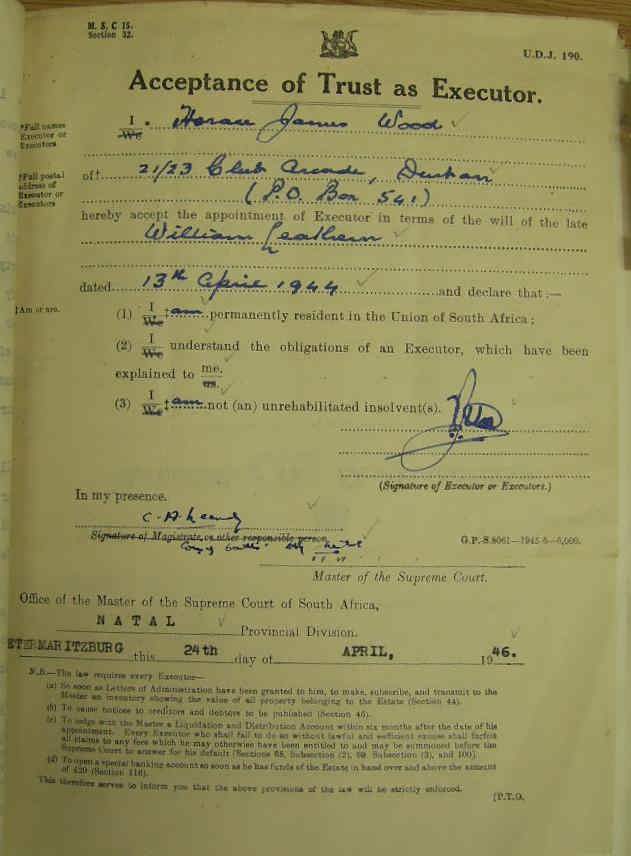 M. S. C 15.
Section 32.
U.D.J. 190.
Acceptance of Trust as Executor.
*Full names
Executor or
Executors
I
We
Horace James Wood
†Full postal
address of
Executor or
Executors
of† 21/23 Club Arcade, Durban
(P.O. Box 541)
hereby accept the appointment of Executor in terms of the will of the late
William Leathern
dated 13th April 1944 and declare that :—
‡Am or are.
(1) I
We ‡am permanently resident in the Union of South Africa ;
(2) I
We understand the obligations of an Executor, which have been
explained to me.
us.
(3) I
We ‡am not (an) unrehabilitated insolvent(s).
(Signature of Executor or Executors.)
In my presence.
Signature of Magistrate or other responsible person
G.P.-S.8061—1945-6—6,000.
Master of the Supreme Court.
Office of the Master of the Supreme Court of South Africa,
NATAL Provincial Division.
ETERMARITZBURG this 24th day of APRIL, 1946.
N.B.—The law requires every Executor—
(a) So soon as Letters of Administration have been granted to him, to make, subscribe, and transmit to the
Master an inventory showing the value of all property belonging to the Estate (Section 44).
(b) To cause notices to creditors and debtors to be published (Section 46).
(c) To lodge with the Master a Liquidation and Distribution Account within six months after the date of his
appointment. Every Executor who shall fail to do so without lawful and sufficient excuse shall forfeit
all claims to any fees which he may otherwise have been entitled to and may be summoned before the
Supreme Court to answer for his default (Sections 68, Subsection (2), 99, Subsection (3), and 100).
(d) To open a special banking account so soon as he has funds of the Estate in hand over and above the amount
of £20 (Section 116).
This therefore serves to inform you that the above provisions of the law will be strictly enforced.
(P.T.O.